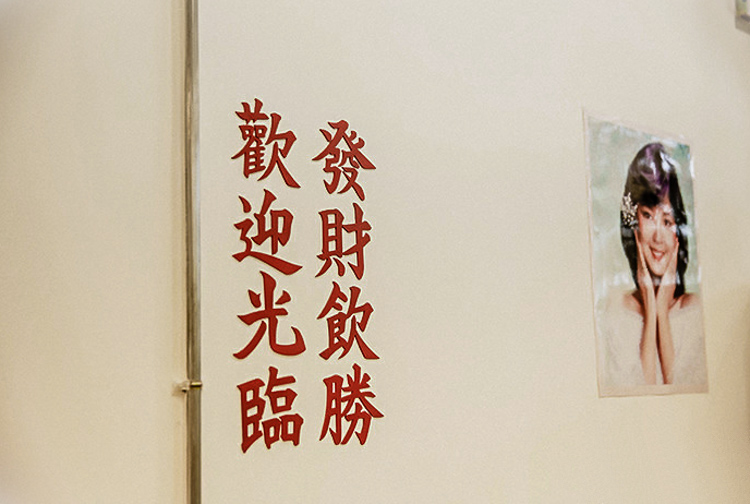 發財飲勝
歡迎光臨